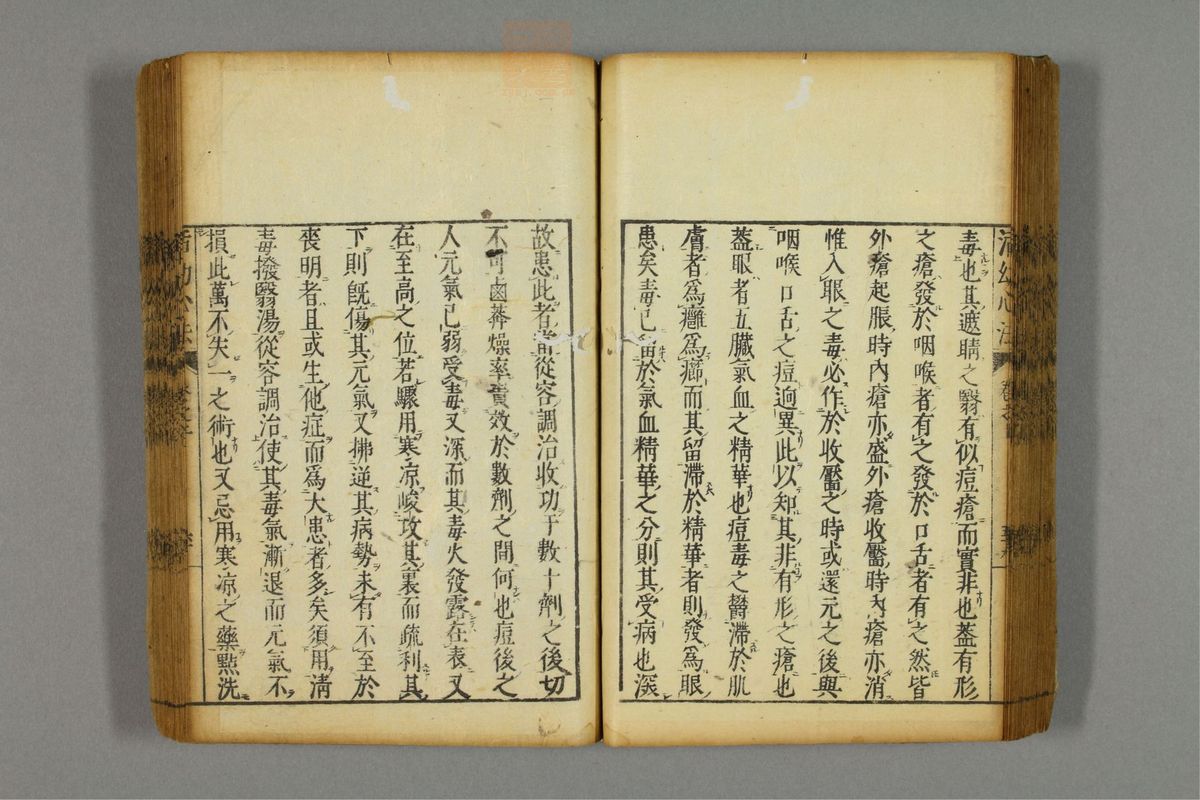 毒也其遮睛之翳有似痘瘡而實非也蓋有形
之瘡發於咽喉者有之發於口舌者有之然皆
外瘡起脹時內瘡亦盛外瘡收靨時內瘡亦消
惟入眼之毒必作於收靨之時或還元之後與
咽喉口舌之痘逈異此以知其非有形之瘡也
蓋眼者五臟氣血之精華也痘毒之欝滯於肌
膚者爲癰爲癤而其留滯於精華者則發爲眼
患矣毒已留於氣血精華之分則其受病也深
故患此者當從容調治收功于數十劑之後切
不可鹵莽燥率責效於數劑之間何也痘後之
人元氣已弱受毒又深而其毒火發露在表又
在至高之位若驟用寒凉峻攻其裏而疏利其
下則旣傷其元氣又拂逆其病勢未有不至於
喪明者且或生他症而爲大患者多矣須用清
毒撥翳湯從容調治使其毒氣漸退而元氣不
損此萬不失一之術也又忌用寒凉之藥㸃洗